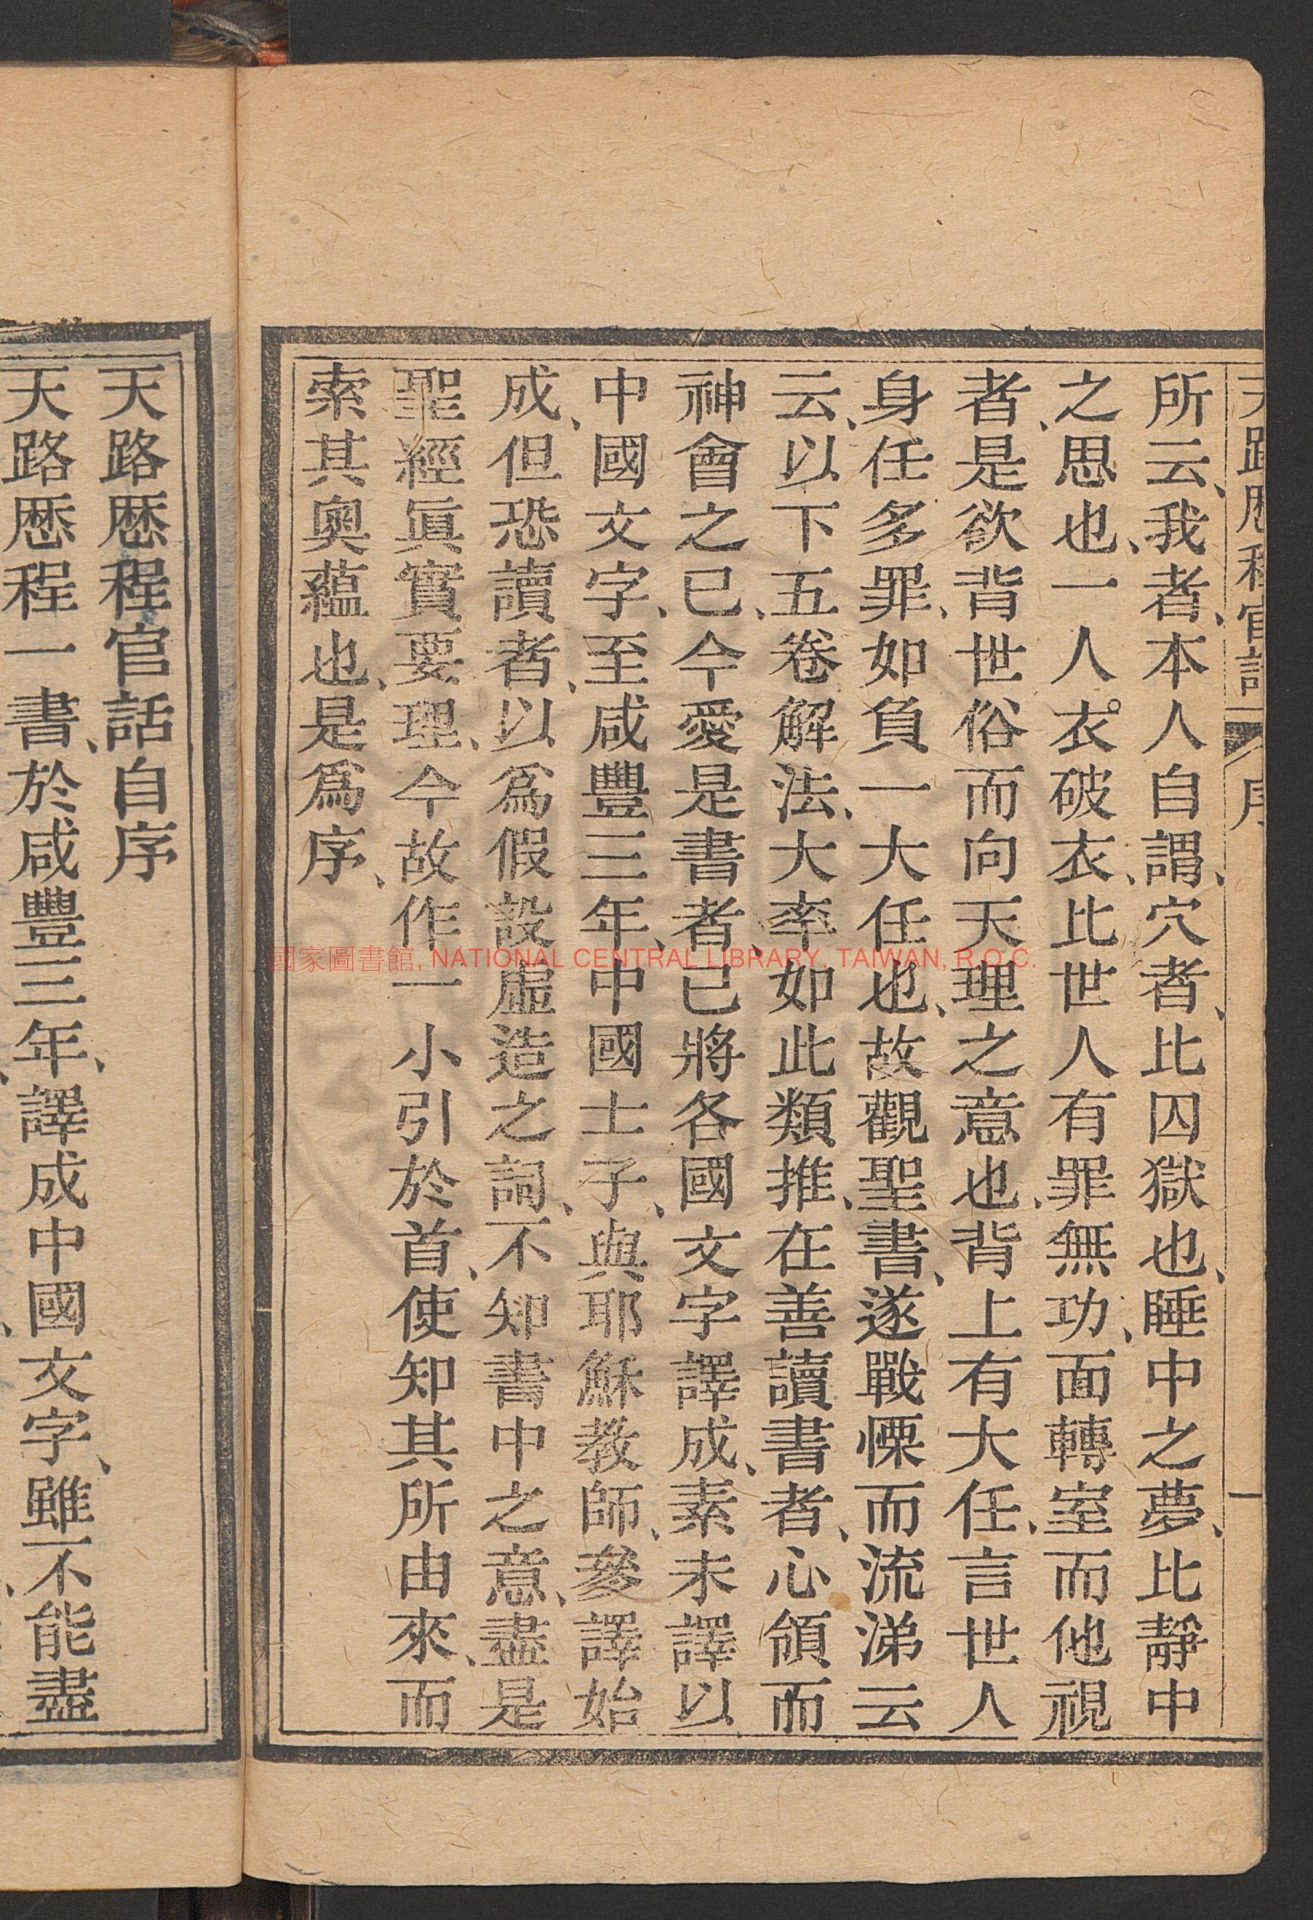 天路歷程官話 序 一
所云、我者、本人自謂、穴者、比囚獄也、睡中之夢、比靜中
之思也、一人衣破衣、比世人有罪無功、面轉室而他視
者、是欲背世俗而向天理之意也、背上有大任、言世人
身任多罪、如負一大任也、故觀聖書、遂戰慄而流涕云
云、以下五卷解法、大率如此類推、在善讀書者、心領而
神會之已、今愛是書者、已將各國文字譯成、素未譯以
中國文字、至咸豐三年、中國士子、與耶穌教師、參譯始
成、但恐讀者、以爲假設虛造之詞、不知書中之意、盡是
聖經眞實要理、今故作一小引於首、使知其所由來、而
索其奧蘊也、是爲序、
天路歷程官話自序
天路歷程一書、於咸豐三年、譯成中國文字、雖不能盡
國家圖書館, NATIONAL CENTRAL LIBRARY, TAIWAN, R.O.C.